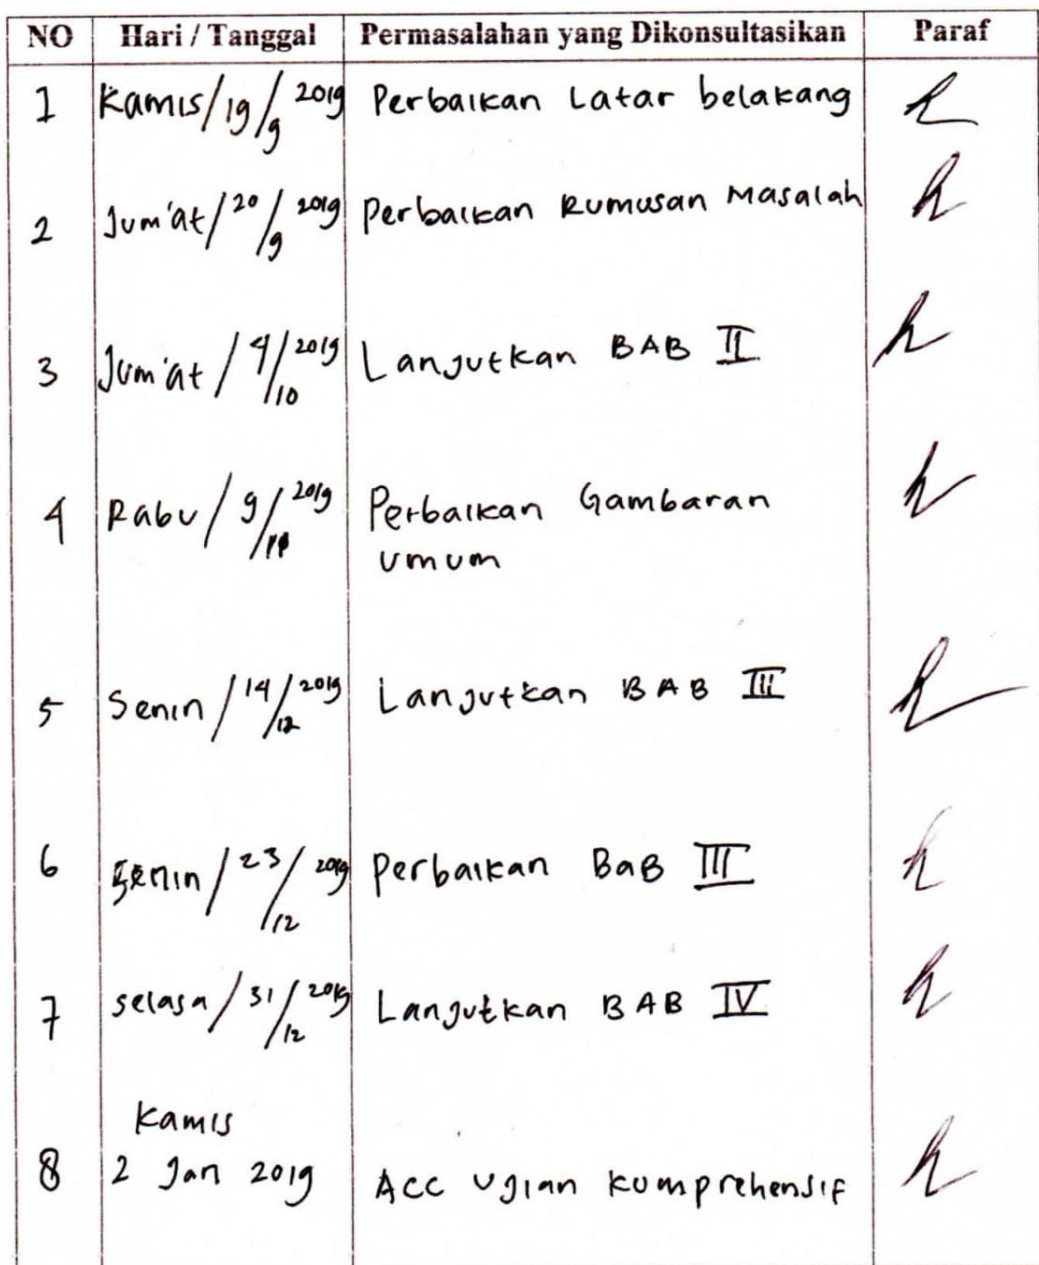 NO Hari / Tanggal Permasalahan yang Dikonsultasikan Paraf
1 Kamis/19/9 2019 Perbaikan Latar belakang
2 Jum'at/20/9 2019 Perbaikan Rumusan Masalah
3 Jum'at/4/10 2019 Lanjutkan BAB II
4 Rabu/9/ 2019 Perbaikan Gambaran
umum
5 Senin/14/12 2019 Lanjutkan BAB III
6 Senin/23/12 2019 Perbaikan BaB III
7 selasa/31/12 2019 Lanjutkan BAB IV
Kamis
8 2 Jan 2019 Acc Ujian Kumprehensif